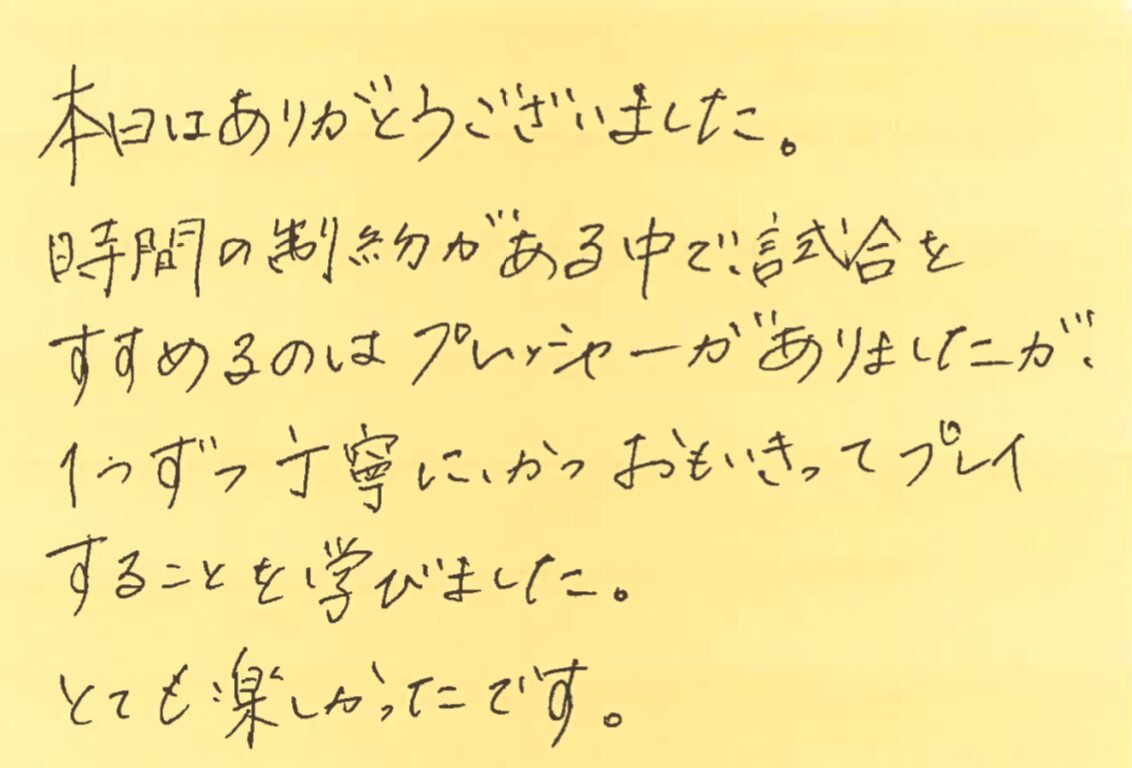 本日はありがとうございました。
時間の制約がある中で、試合を
すすめるのはプレッシャーがありましたが、
1つずつ丁寧に、かつおもいきってプレイ
することを学びました。
とても楽しかったです。